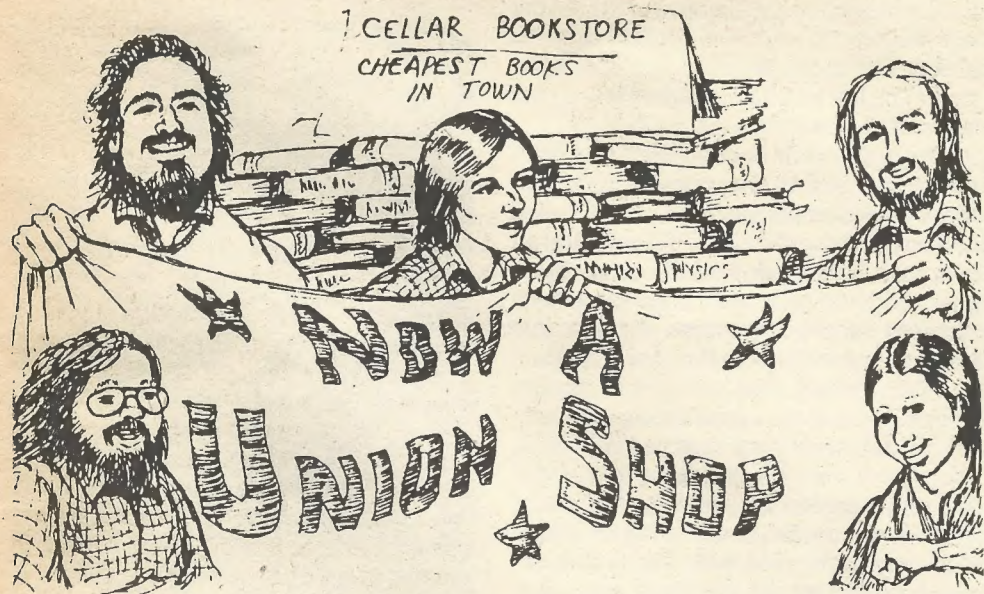 CELLAR BOOKSTORE
CHEAPEST BOOKS
IN TOWN
PHYSICS
NOW A
UNION SHOP